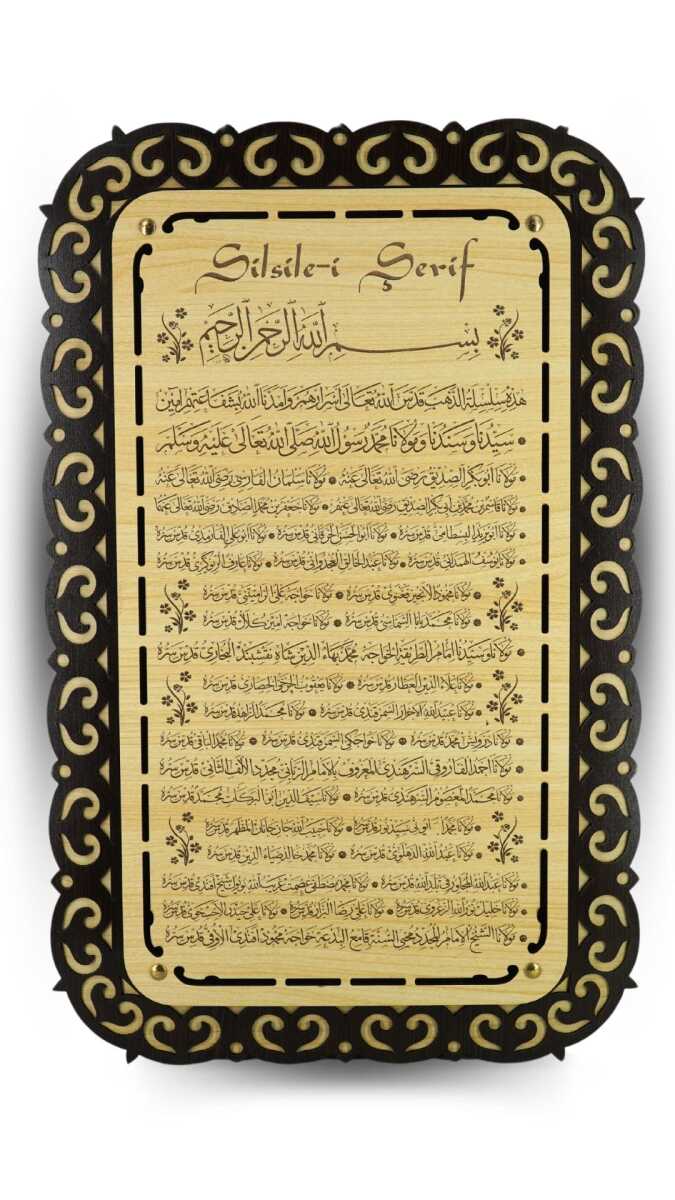 Silsile-i Şerif
بسم الله الرحمن الرحيم
هذه سلسلة الذهب قدس الله تعالى أسرارهم وأمدنا الله بشفاعتهم آمين
سيدنا وسندنا ومولانا محمد رسول الله صلى الله تعالى عليه وسلم
مولانا أبو بكر الصديق رضي الله تعالى عنه مولانا سلمان الفارسي رضي الله تعالى عنه
مولانا قاسم بن محمد بن أبي بكر الصديق رضي الله تعالى عنهم مولانا جعفر بن محمد الصادق رضي الله تعالى عنهما
مولانا أبو يزيد البسطامي قدس سره مولانا أبو الحسن الخرقاني قدس سره مولانا أبو علي الفارمدي قدس سره
مولانا يوسف الهمداني قدس سره مولانا عبد الخالق الغجدواني قدس سره مولانا عارف الريوكري قدس سره
مولانا محمود الانجير فغنوي قدس سره مولانا خواجه علي الرامتني قدس سره
مولانا محمد بابا السماسي قدس سره مولانا خواجه امير كلال قدس سره
مولانا وسيدنا إمام الطريقة الخواجه محمد بهاء الدين شاه نقشبند البخاري قدس سره
مولانا علاء الدين العطار قدس سره مولانا يعقوب الچرخي الحصاري قدس سره
مولانا عبيد الله الاحرار السمرقندي قدس سره مولانا محمد الزاهد قدس سره
مولانا درويش محمد قدس سره مولانا خواجكي السمرقندي قدس سره مولانا محمد الباقي قدس سره
مولانا احمد الفاروقي السرهندي المعروف بالإمام الرباني مجدد الألف الثاني قدس سره
مولانا محمد المعصوم السرهندي قدس سره مولانا سيف الدين ابو البركات محمد قدس سره
مولانا محمد نور قدس سره مولانا حبيب الله جان جانان المظهر قدس سره
مولانا عبد الله الدهلوي قدس سره مولانا محمد خالد ضياء الدين قدس سره
مولانا عبد الله المجاور في بلد الله قدس سره مولانا محمد مصطفى عصمت غريب الله افندي قدس سره
مولانا خليل نور الله الزغروي قدس سره مولانا علي رضا البزار قدس سره مولانا علي حيدر الآخسخوي قدس سره
مولانا الشيخ الإمام المجدد محيي السنة قامع البدعة خواجه محمود أفندي الأوفي قدس سره